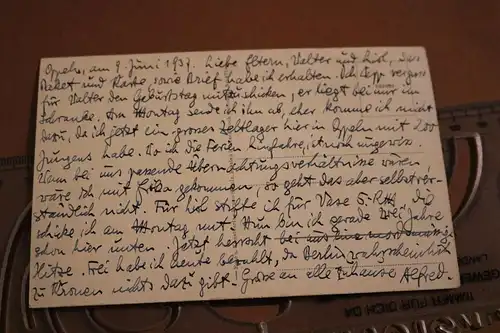 Oppeln, am 9. Juni 1937. Liebe Eltern, Walter und Lisl, das
Paket und Karte, sowie Brief habe ich erhalten. Ich Depp vergass
für Walter den Geburtstag mitzuschicken, er liegt bei mir im
Schranke. Am Montag sende ich ihn ab, eher komme ich nicht
dazu, da ich jetzt ein grosses Zeltlager hier in Oppeln mit 200
Jungens habe. Wo ich die Ferien hinfahre, ist noch ungewiss.
Wenn bei uns passende Übernachtungsverhältnisse wären,
wäre ich mit gekommen, so geht das aber selbstver-
ständlich nicht. Für Lisl stifte ich für Vase 5.- RM, die
schicke ich am Montag mit. Nun bin ich gerade zwei Jahre
schon hier unten. Jetzt herrscht bei uns eine
Hitze. Frei habe ich heute bezahlt, da Berlin wahrscheinlich
zu Kronen nichts dazu gibt. Grüsse an alle zuhause Alfred.